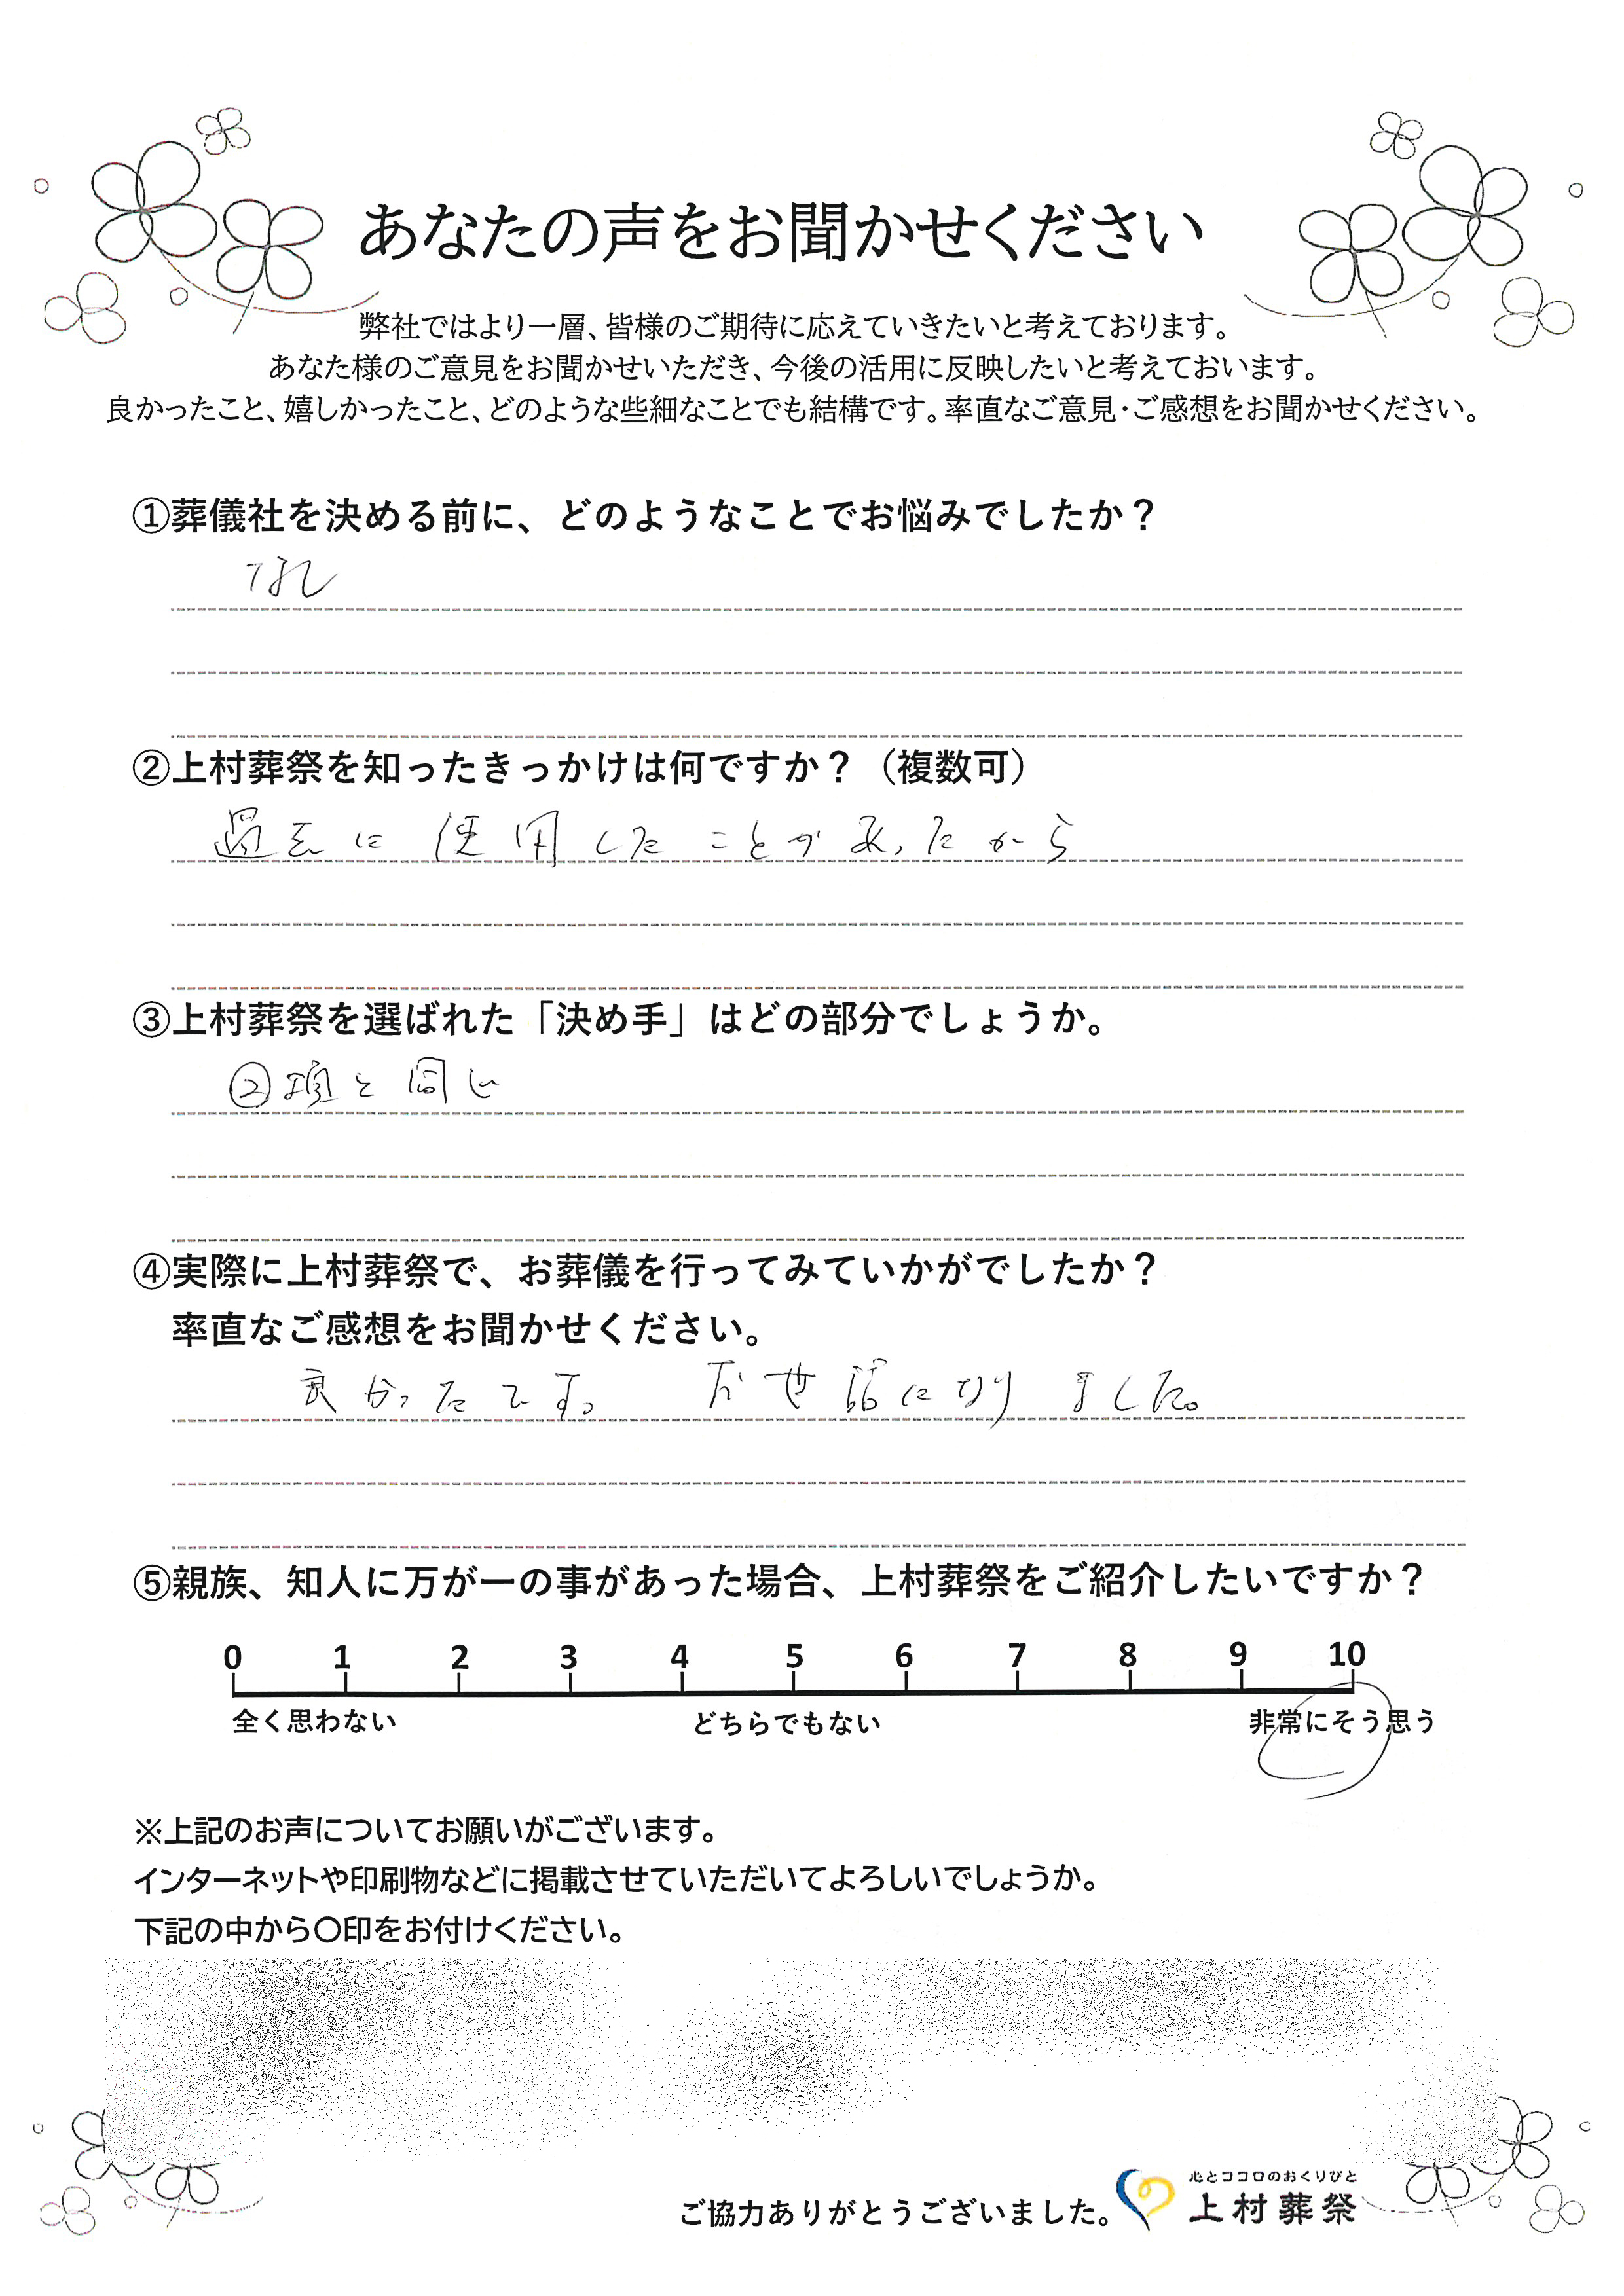 あなたの声をお聞かせください
弊社ではより一層、皆様のご期待に応えていきたいと考えております。
あなた様のご意見をお聞かせいただき、今後の活用に反映したいと考えておいます。
良かったこと、嬉しかったこと、どのような些細なことでも結構です。率直なご意見・ご感想をお聞かせください。
①葬儀社を決める前に、どのようなことでお悩みでしたか？
なし
②上村葬祭を知ったきっかけは何ですか？（複数可）
過去に使用したことがあったから
③上村葬祭を選ばれた「決め手」はどの部分でしょうか。
②項と同じ
④実際に上村葬祭で、お葬儀を行ってみていかがでしたか？
率直なご感想をお聞かせください。
良かったです。 お世話になりました。
⑤親族、知人に万が一の事があった場合、上村葬祭をご紹介したいですか？
0 1 2 3 4 5 6 7 8 9 10
全く思わない どちらでもない 非常にそう思う
※上記のお声についてお願いがございます。
インターネットや印刷物などに掲載させていただいてよろしいでしょうか。
下記の中から〇印をお付けください。
心とココロのおくりびと
ご協力ありがとうございました。 上村葬祭